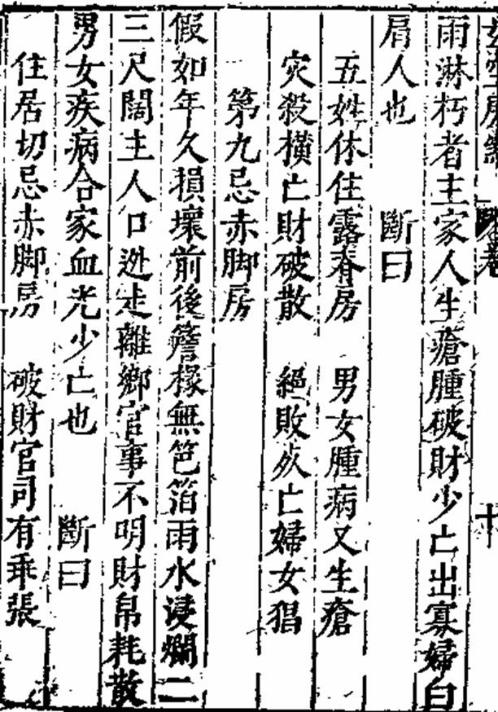 十
雨淋朽者主家人生瘡腫破財少亡出寡婦白
眉人也　斷曰
五姓休住露脊房　男女腫病又生瘡
灾殺橫亡財破散　絕敗夭亡婦女猖
第九忌赤脚房
假如年久損壞前後簷椽無笆箔雨水浸爛二
三尺闊主人口迯走離鄉官事不明財帛耗散
男女疾病合家血光少亡也　斷曰
住居切忌赤脚房　破財官司有乖張